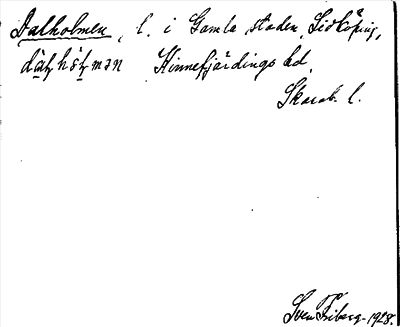 Dalholmen, l. i Gamla staden, Lidköping,
Kinnefjärdings hd.
Skarab. l.
Sven Friberg 1928.